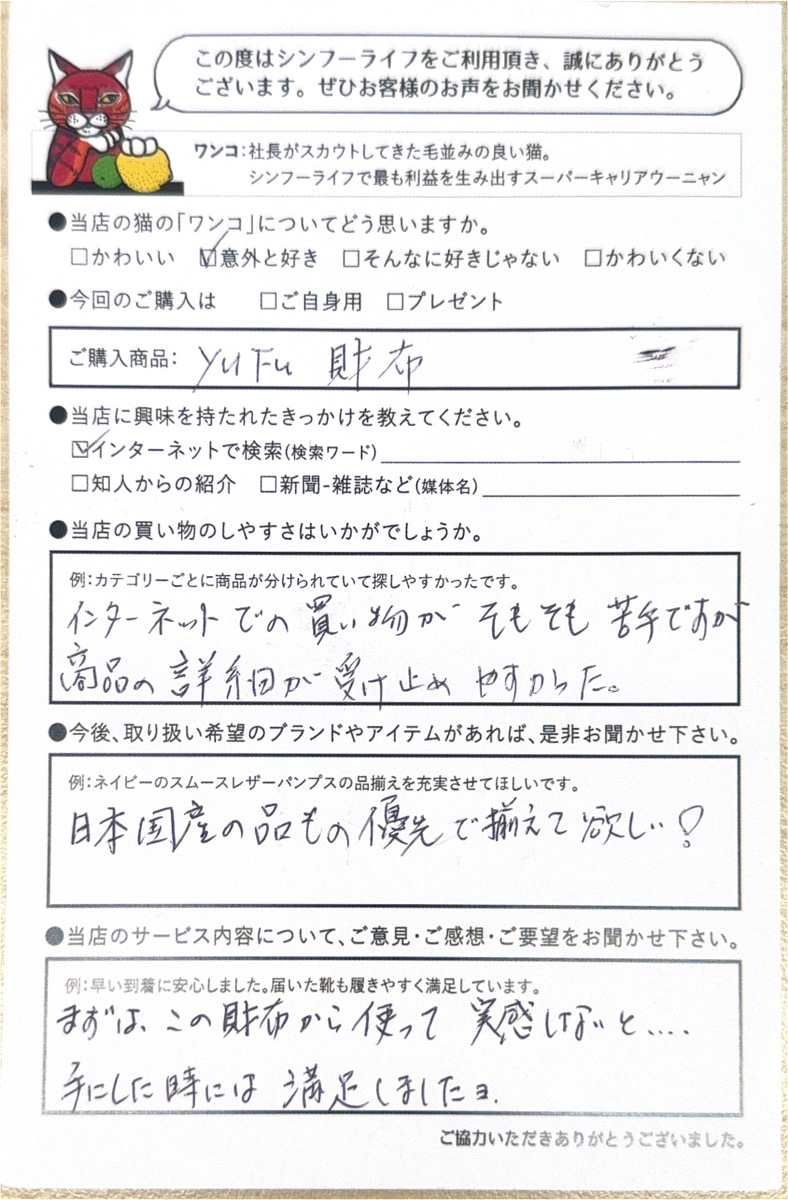 この度はシンフーライフをご利用頂き、誠にありがとう
ございます。ぜひお客様のお声をお聞かせください。
ワンコ:社長がスカウトしてきた毛並みの良い猫。
シンフーライフで最も利益を生み出すスーパーキャリアウーニャン
●当店の猫の「ワンコ」についてどう思いますか。
□かわいい ☑意外と好き □そんなに好きじゃない □かわいくない
●今回のご購入は □ご自身用 □プレゼント
ご購入商品: YUFU 財布
●当店に興味を持たれたきっかけを教えてください。
☑インターネットで検索(検索ワード)
□知人からの紹介 □新聞-雑誌など(媒体名)
●当店の買い物のしやすさはいかがでしょうか。
例:カテゴリーごとに商品が分けられていて探しやすかったです。
インターネットでの買い物がそもそも苦手ですが
商品の詳細が受け止めやすかった。
●今後、取り扱い希望のブランドやアイテムがあれば、是非お聞かせ下さい。
例:ネイビーのスムースレザーパンプスの品揃えを充実させてほしいです。
日本国産の品もの優先で揃えて欲しい!
●当店のサービス内容について、ご意見・ご感想・ご要望をお聞かせ下さい。
例:早い到着に安心しました。届いた靴も履きやすく満足しています。
まずは、この財布から使って実感しないと....
手にした時には満足しましたヨ.
ご協力いただきありがとうございました。